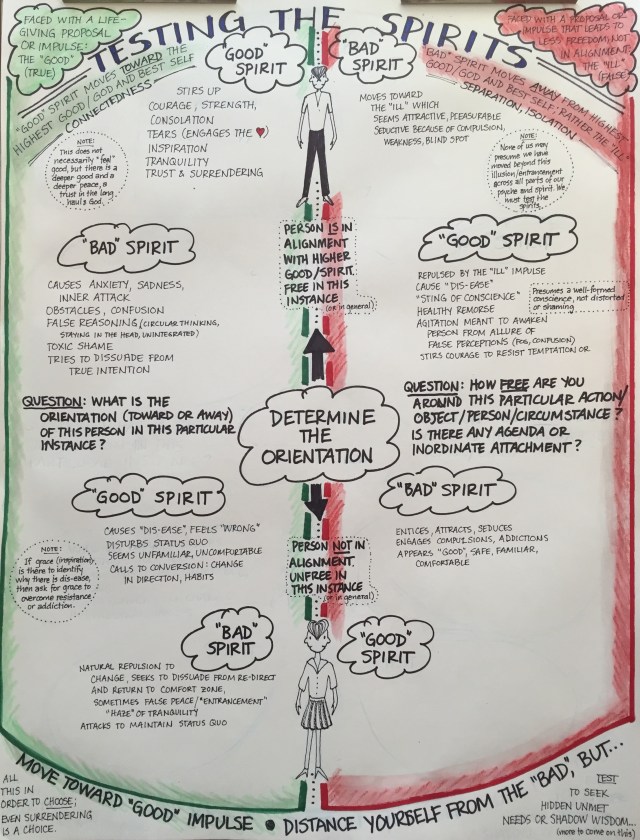 TESTING THE SPIRITS
FACED WITH A LIFE-
GIVING PROPOSAL
OR IMPULSE:
THE "GOOD"
(TRUE)
FACED WITH A PROPOSAL OR
IMPULSE THAT LEADS TO
LESS FREEDOM, NOT
IN ALIGNMENT.
THE "ILL"
(FALSE)
"GOOD" SPIRIT MOVES TOWARD THE
HIGHEST GOOD/GOD AND BEST SELF
CONNECTEDNESS
"BAD" SPIRIT MOVES AWAY FROM HIGHEST
GOOD/GOD AND BEST SELF-RATHER THE "ILL"
SEPARATION, ISOLATION
"GOOD"
SPIRIT
STIRS UP
COURAGE, STRENGTH,
CONSOLATION
TEARS (ENGAGES THE ♥)
INSPIRATION
TRANQUILITY
TRUST & SURRENDERING
NOTE:
This does not
necessarily "feel"
good, but there is a
deeper good and a
deeper peace, a
trust in the long
haul & God.
"BAD"
SPIRIT
MOVES TOWARD
THE "ILL" WHICH
SEEMS ATTRACTIVE, PLEASURABLE
SEDUCTIVE BECAUSE OF COMPULSION,
WEAKNESS, BLIND SPOT
NOTE:
None of us may
presume we have
moved beyond this
illusion/entrancement
across all parts of our
psyche and spirit. We
must test the
spirits.
PERSON IS IN
ALIGNMENT
WITH HIGHER
GOOD/SPIRIT.
FREE IN THIS
INSTANCE
(or in general)
"BAD" SPIRIT
CAUSES ANXIETY, SADNESS,
INNER ATTACK
OBSTACLES, CONFUSION
FALSE REASONING (CIRCULAR THINKING,
STAYING IN THE HEAD, UNINTEGRATED)
TOXIC SHAME
TRIES TO DISSUADE FROM
TRUE INTENTION
"GOOD" SPIRIT
REPULSED BY THE "ILL" IMPULSE
CAUSE "DIS-EASE"
"STING OF CONSCIENCE"
HEALTHY REMORSE
AGITATION MEANT TO AWAKEN
PERSON FROM ALLURE OF
FALSE PERCEPTIONS (FOG, CONFUSION)
STIRS COURAGE TO RESIST TEMPTATION OR
Presumes a well-formed
conscience, not distorted
or shaming
QUESTION: WHAT IS THE
ORIENTATION (TOWARD OR AWAY)
OF THIS PERSON IN THIS PARTICULAR
INSTANCE?
DETERMINE
THE
ORIENTATION
QUESTION: HOW FREE ARE YOU
AROUND THIS PARTICULAR ACTION/
OBJECT/PERSON/CIRCUMSTANCE?
IS THERE ANY AGENDA OR
INORDINATE ATTACHMENT?
"GOOD" SPIRIT
CAUSES "DIS-EASE", FEELS "WRONG"
DISTURBS STATUS QUO
SEEMS UNFAMILIAR, UNCOMFORTABLE
CALLS TO CONVERSION: CHANGE
IN DIRECTION, HABITS
NOTE:
If grace (inspiration)
is there to identify
why there is dis-ease,
then ask for grace to
overcome resistance
or addiction.
"BAD" SPIRIT
ENTICES, ATTRACTS, SEDUCES
ENGAGES COMPULSIONS, ADDICTIONS
APPEARS "GOOD", SAFE, FAMILIAR,
COMFORTABLE
PERSON NOT IN
ALIGNMENT.
UNFREE IN
THIS INSTANCE
(or in general)
"BAD"
SPIRIT
NATURAL REPULSION TO
CHANGE, SEEKS TO DISSUADE FROM RE-DIRECT
AND RETURN TO COMFORT ZONE,
SOMETIMES FALSE PEACE/"ENTRANCEMENT"
"HAZE" OF TRANQUILITY
ATTACKS TO MAINTAIN STATUS QUO
"GOOD"
SPIRIT
MOVE TOWARD "GOOD" IMPULSE • DISTANCE YOURSELF FROM THE "BAD", BUT...
ALL
THIS IN
ORDER TO CHOOSE;
EVEN SURRENDERING
IS A CHOICE.
TEST
TO SEEK
HIDDEN UNMET
NEEDS OR SHADOW WISDOM...
(more to come on this)